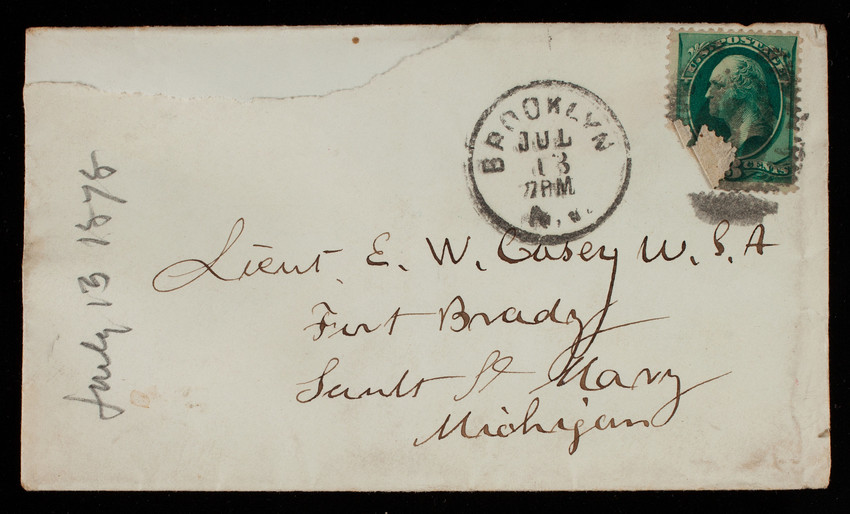 U.S. POSTAGE
3 CENTS
BROOKLYN
JUL
13
7PM
N.Y.
Lieut. E. W. Casey U.S.A
Fort Brady
Sault St Mary
Michigan
July 13 1878